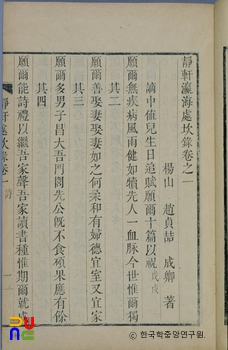 靜軒瀛海處坎錄卷之一
楊山 趙貞喆 成卿 著
謫中値兒生日追賦願爾十篇以祝 戊戌
願爾無疾病風雨健如犢先人一血脉今世惟爾獨
其二
願爾善娶妻娶妻如之何柔和有婦德宜室又宜家
其三
願爾多男子昌大吾門閭先公旣不食碩果應有餘
其四
願爾能詩禮以繼吾家聲吾家讀書種惟期爾就成
靜軒處坎錄卷一 詩 一
ⓒ 한국학중앙연구원.